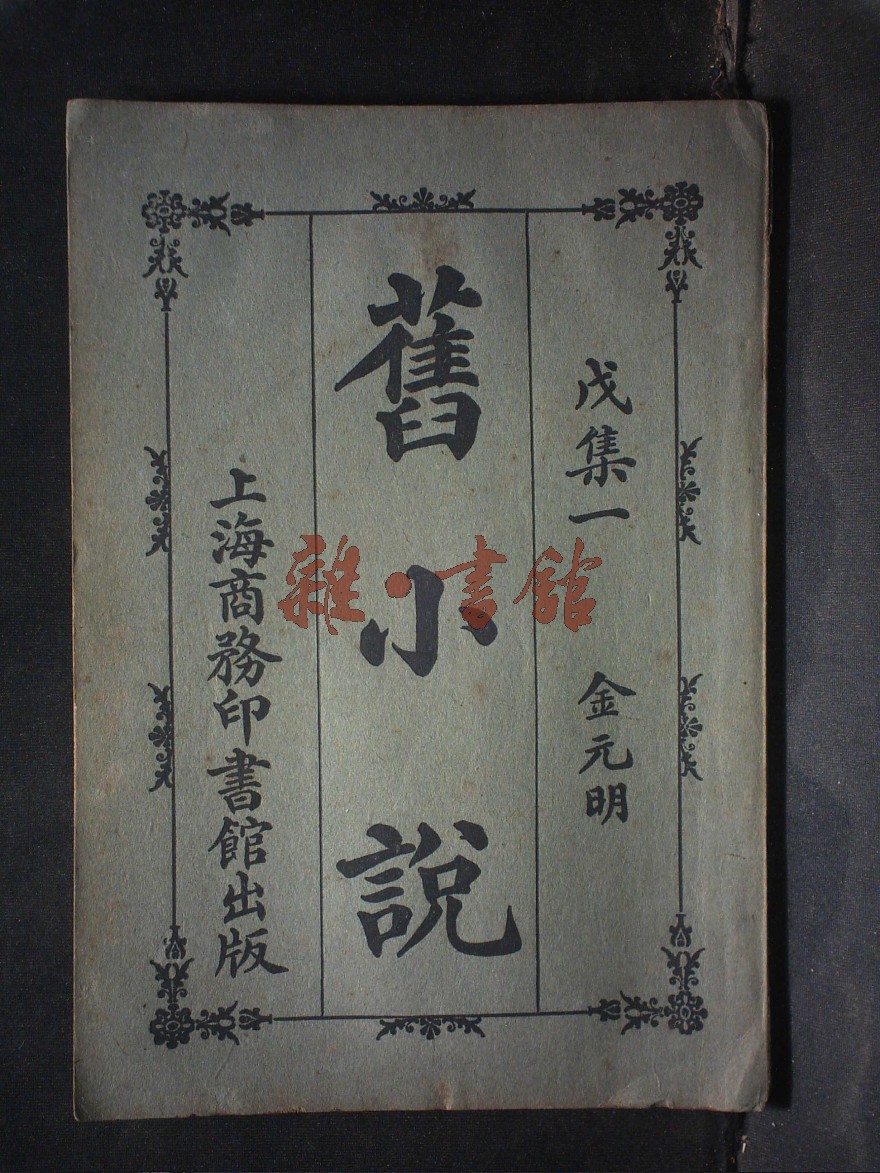 戊集一 金元明
舊小說
上海商務印書館出版
雜·書館